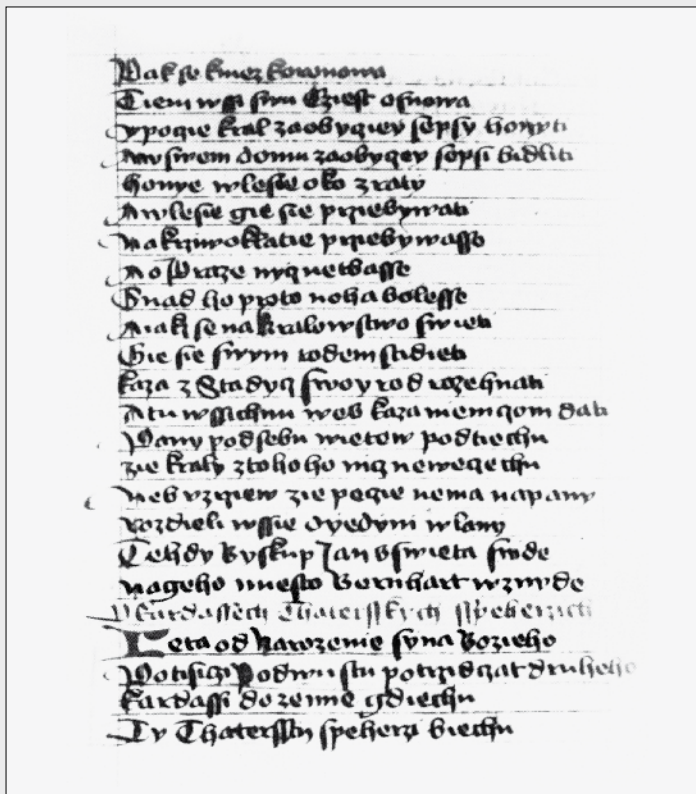 Pak se kniez korunowa
Tiem wssi swu Cziest osnowa
ypogie kral zaobycziey sepsy honyti
Aw swem domu zaobyczey sepsi bidliti
honye wlesie oko zraty
Awlesie gie sie prziebywati
Nakrziwoklatie prziebywasse
Ao Praze nycznetbasse
Snad ho proto noha bolesse
Aiakz se nakralowstwo swieti
Gie sie swym rodem stidieti
kaza z Stadycz swoy rod rozehnati
Atu wssichnu wes kaza niemczom dati
Pany podsebu nietow podtiechu
zie kraly ztohoho nicz newegechu
Neb vzrziew zie pogie nema napany
rozdieli wssie dyedyni wlany
Tehdy Byskup Jan sswieta snide
nageho miesto Bernhart wznyde
O kardassech Thatersskych sspeherzich
Leta od Narozenie syna Bozieho
Potisiczi Podwustu potrzidczat druheho
kardassi dozemie gdiechu
Ty Thatersszy speherzi biechu